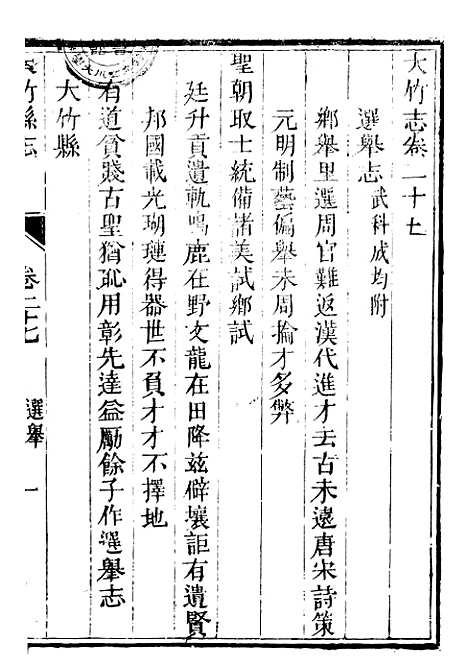 大竹志卷二十七
選舉志武科成均附
鄉舉里選周官難返漢代進才去古未遠唐宋詩策
元明制藝偏舉未周掄才多弊
聖朝取士統備諸美試鄉試
廷升貢遺軌鳴鹿在野文龍在田降茲僻壤詎有遺賢
邦國載光瑚璉得器世不負才才不擇地
有道貧賤古聖猶恥用彰先達益勵餘子作選舉志
大竹縣
大竹縣志
卷二十七
選舉
一